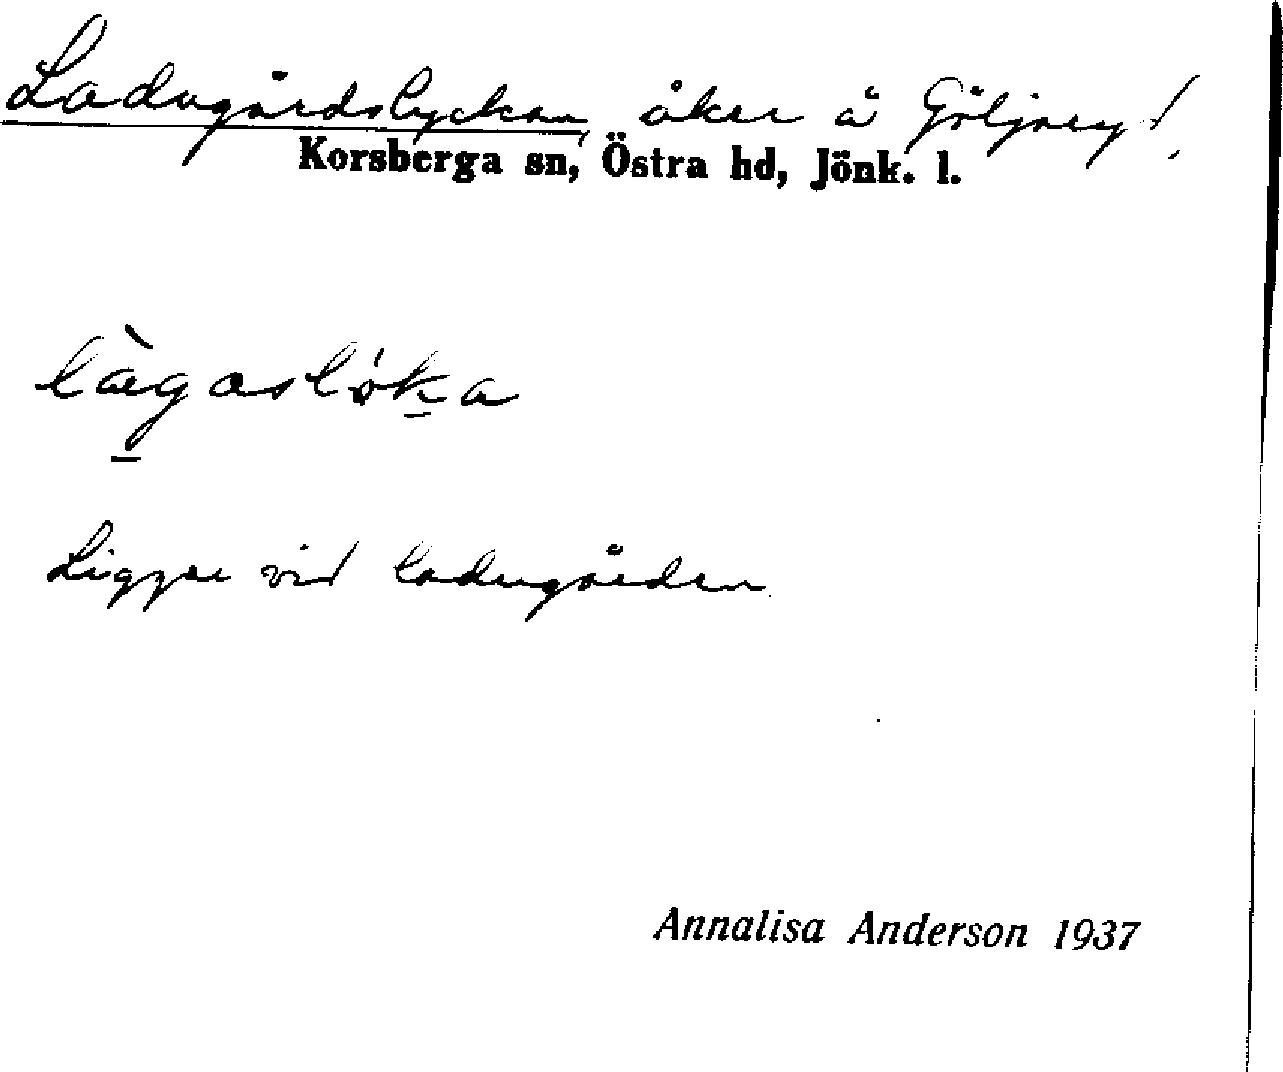 Ladugårdslyckan, åker å Göljaryd.
Korsberga sn, Östra hd, Jönk. l.
làgaslóka
Ligger vid ladugården
Annalisa Anderson 1937